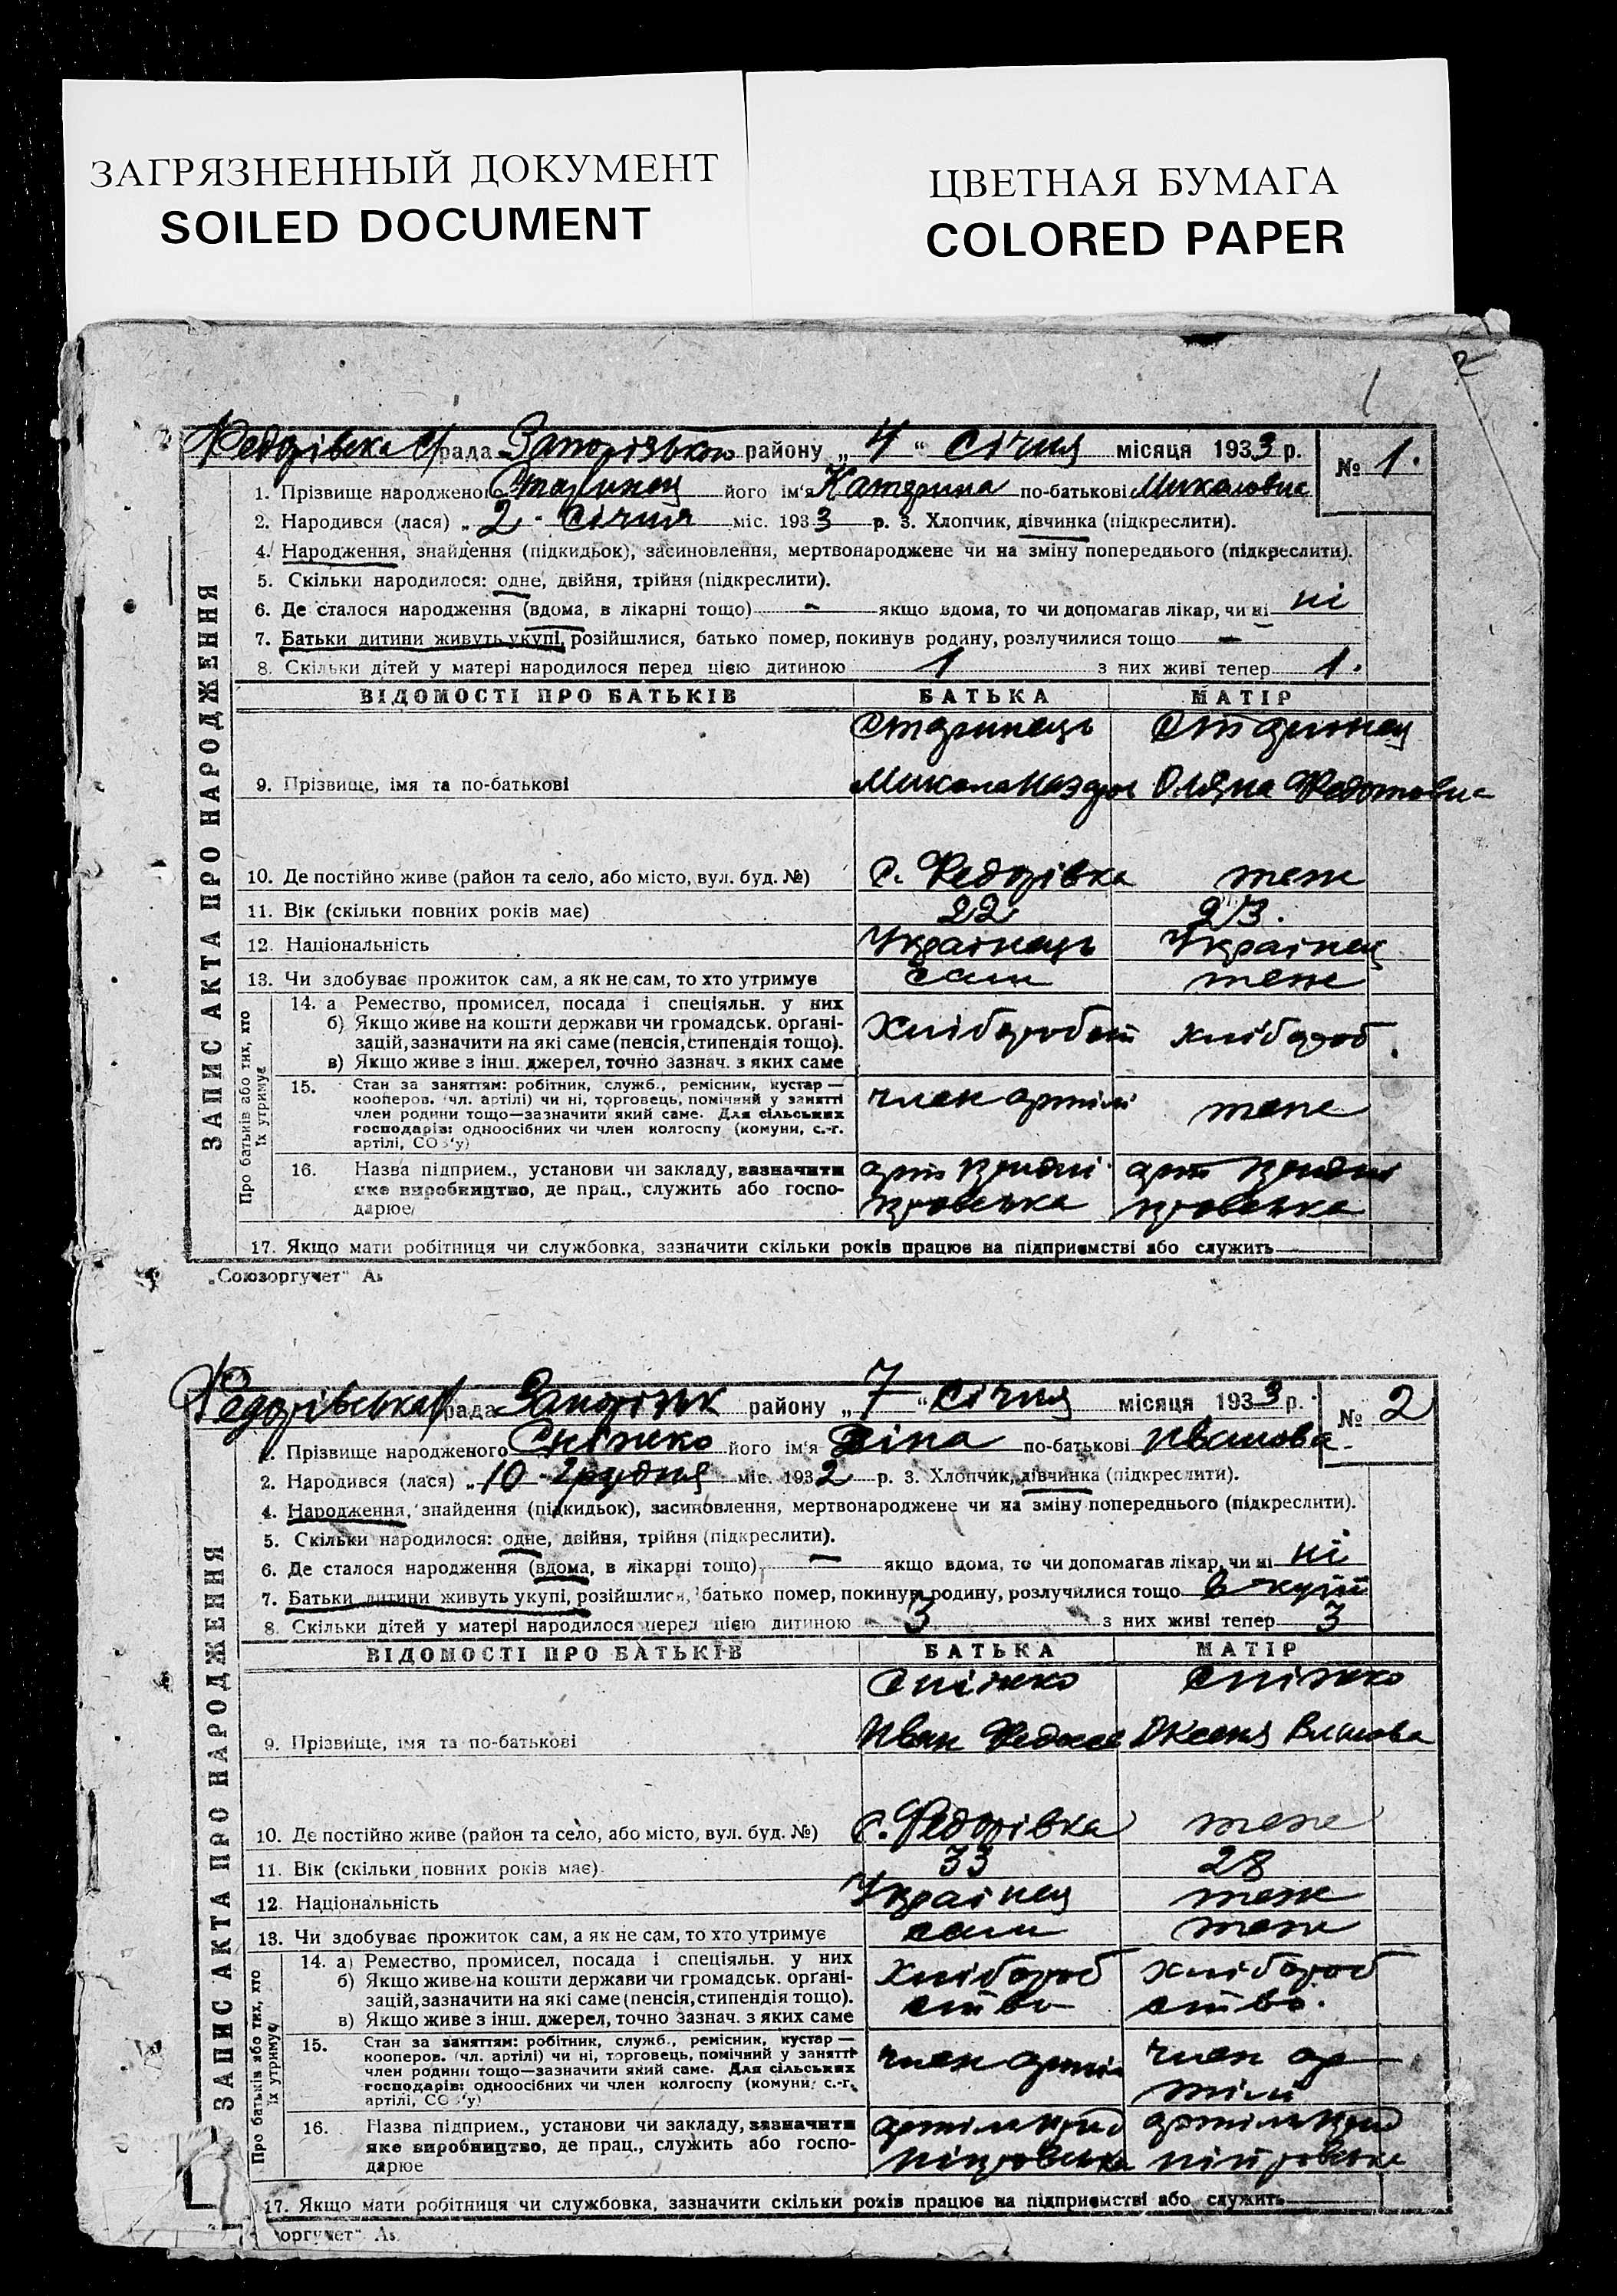 ЗАГРЯЗНЕННЫЙ ДОКУМЕНТ
SOILED DOCUMENT
ЦВЕТНАЯ БУМАГА
COLORED PAPER
2
Федорівська с/рада Запорізького району „4“ Січня місяця 1933 р.
№ 1.
1. Прізвище народженого Старинец його ім'я Катерина по-батькові Миколовна
2. Народився (лася) „2 Січня міс. 1933 р. 3. Хлопчик, дівчинка (підкреслити).
4. Народження, знайдення (підкидьок), засиновлення, мертвонароджене чи на зміну попереднього (підкреслити).
5. Скільки народилося: одне, двійня, трійня (підкреслити).
6. Де сталося народження (вдома, в лікарні тощо) - якщо вдома, то чи допомагав лікар, чи ні ні
7. Батьки дитини живуть укупі, розійшлися, батько помер, покинув родину, розлучилися тощо —
8. Скільки дітей у матері народилося перед цією дитиною 1 з них живі тепер 1.
ВІДОМОСТІ ПРО БАТЬКІВ БАТЬКА МАТІР
Старинець Старинец
9. Прізвище, імя та по-батькові Микола Назаров Оляна Федотовна
10. Де постійно живе (район та село, або місто, вул. буд. №) с. Федорівка теж
11. Вік (скільки повних років має) 22 23.
12. Національність Українець Українец
13. Чи здобуває прожиток сам, а як не сам, то хто утримує сам теж
14. а Ремество, промисел, посада і спеціяльн. у них
б) Якщо живе на кошти держави чи громадськ. органі-
зацій, зазначити на які саме (пенсія, стипендія тощо). хлібороб
в) Якщо живе з інш. джерел, точно зазнач. з яких саме
15. Стан за заняттям: робітник, служб., ремісник, кустар —
кооперов. (чл. артілі) чи ні, торговець, помічний у занятті член артілі теж
член родини тощо—зазначити який саме. Для сільських
господарів: одноосібних чи член колгоспу (комуни, с.-г.
артілі, СОЗ'у)
16. Назва підприєм., установи чи закладу, зазначити арт Придні арт Придні
яке виробництво, де прац., служить або госпо- провська провська
дарює
17. Якщо мати робітниця чи службовка, зазначити скільки років працює на підприємстві або служить
ЗАПИС АКТА ПРО НАРОДЖЕННЯ
Про батьків або тих, хто їх утримує
„Союзоргучет“ Ав
Федорівська с/рада Запорізьк району „7“ Січня місяця 1933 р.
№ 2
1. Прізвище народженого Сніжко його ім'я по-батькові Иванова
2. Народився (лася) „10 Грудня міс. 1932 р. 3. Хлопчик, дівчинка (підкреслити).
4. Народження, знайдення (підкидьок), засиновлення, мертвонароджене чи на зміну попереднього (підкреслити).
5. Скільки народилося: одне, двійня, трійня (підкреслити).
6. Де сталося народження (вдома, в лікарні тощо) — якщо вдома, то чи допомагав лікар, чи ні ні
7. Батьки дитини живуть укупі, розійшлися, батько помер, покинув родину, розлучилися тощо в купі
8. Скільки дітей у матері народилося перед цією дитиною 3 з них живі тепер 3
ВІДОМОСТІ ПРО БАТЬКІВ БАТЬКА МАТІР
Сніжко Сніжко
9. Прізвище, імя та по-батькові Иван Оксеня
10. Де постійно живе (район та село, або місто, вул. буд. №) с. Федорівка теж
11. Вік (скільки повних років має) 33 28
12. Національність Українец теж
13. Чи здобуває прожиток сам, а як не сам, то хто утримує сам теж
14. а) Ремество, промисел, посада і спеціяльн. у них хлібороб хлібороб
б) Якщо живе на кошти держави чи громадськ. органі- ство ство.
зацій, зазначити на які саме (пенсія, стипендія тощо).
в) Якщо живе з інш. джерел, точно зазнач. з яких саме
15. Стан за заняттям: робітник, служб., ремісник, кустар —
кооперов. (чл. артілі) чи ні, торговець, помічний у занятті член артілі член ар
член родини тощо—зазначити який саме. Для сільських тілі
господарів: одноосібних чи член колгоспу (комуни, с.-г.
артілі, СОЗ'у)
16. Назва підприєм., установи чи закладу, зазначити артіль Прид артіль Прид
яке виробництво, де прац., служить або госпо- ніпровська ніпровська
дарює
17. Якщо мати робітниця чи службовка, зазначити скільки років працює на підприємстві або служить
ЗАПИС АКТА ПРО НАРОДЖЕННЯ
Про батьків або тих, хто їх утримує
оргучет“ Ав.